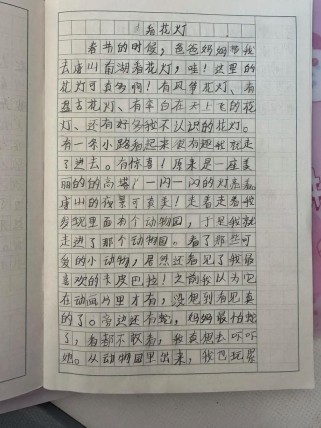 看花灯
春节的时候，爸爸妈妈带我
去唐山南湖看花灯，哇！这里的
花灯可真多啊！有风筝花灯、有
盘古花灯、有李白在天上飞的花
灯、还有好多我不认识的花灯。
有一条小路弯起来没有把我就走
了进去。有惊喜！原来是一座美
丽的的高塔！一闪一闪的灯光看。
唐山的夜景可真美！走着走着我
发现里面有个动物园，于是我就
走进了那个动物园。看了那些可
爱的小动物，居然还看见了我最
喜欢的卡皮巴拉！之前我以为它
在动画片里才有，没想到看见真
的了。旁边还有蛇，妈妈最怕蛇
了，看都不敢看，我真想去吓吓
她。从动物园里出来，我